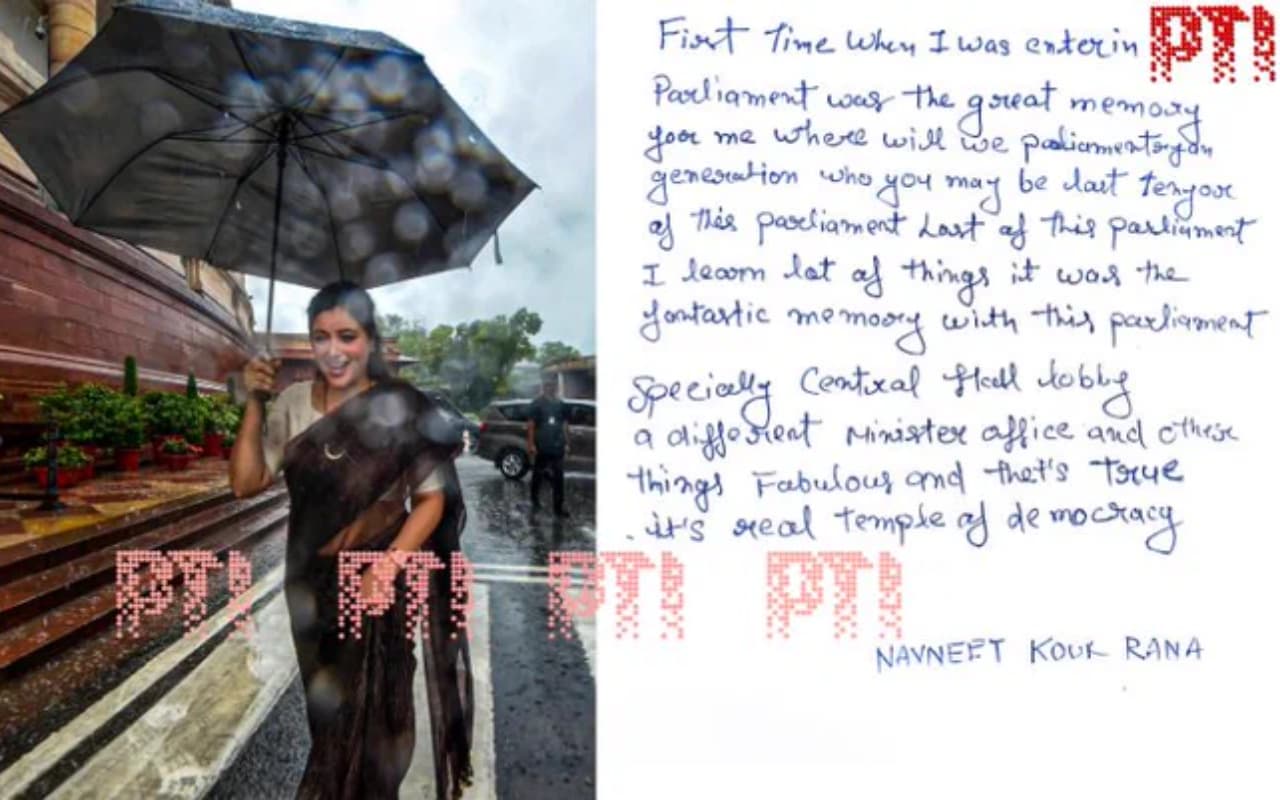 First Time When I was enterin
PTI
Parliament was the great memory
for me where will we parliamentryan
generation who you may be last Tenyoor
of this parliament Last of this parliament
I learn lot of things it was the
fantastic memory with this parliament
Specially Central Hall lobby
a different Minister office and othere
things Fabulous and that's True
. it's real temple of democracy
PTI PTI PTI PTI
NAVNEET KOUR RANA